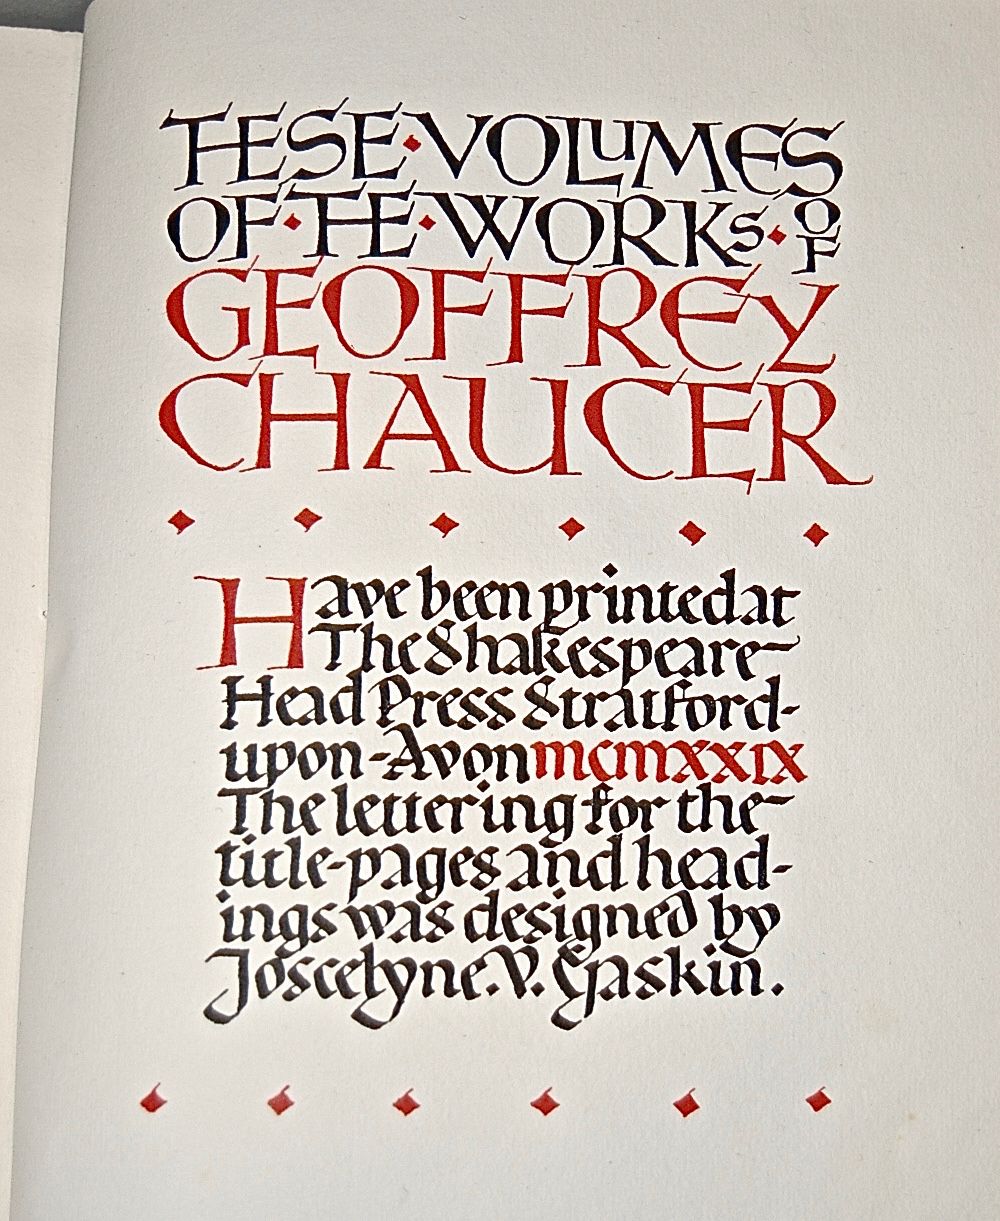 THESE·VOLUMES
OF·THE·WORKS·OF
GEOFFREY
CHAUCER
Have been printed at
The Shakespeare
Head Press Stratford-
upon-Avon mcmxxix
The lettering for the
title-pages and head-
ings was designed by
Joscelyne.V.Gaskin.